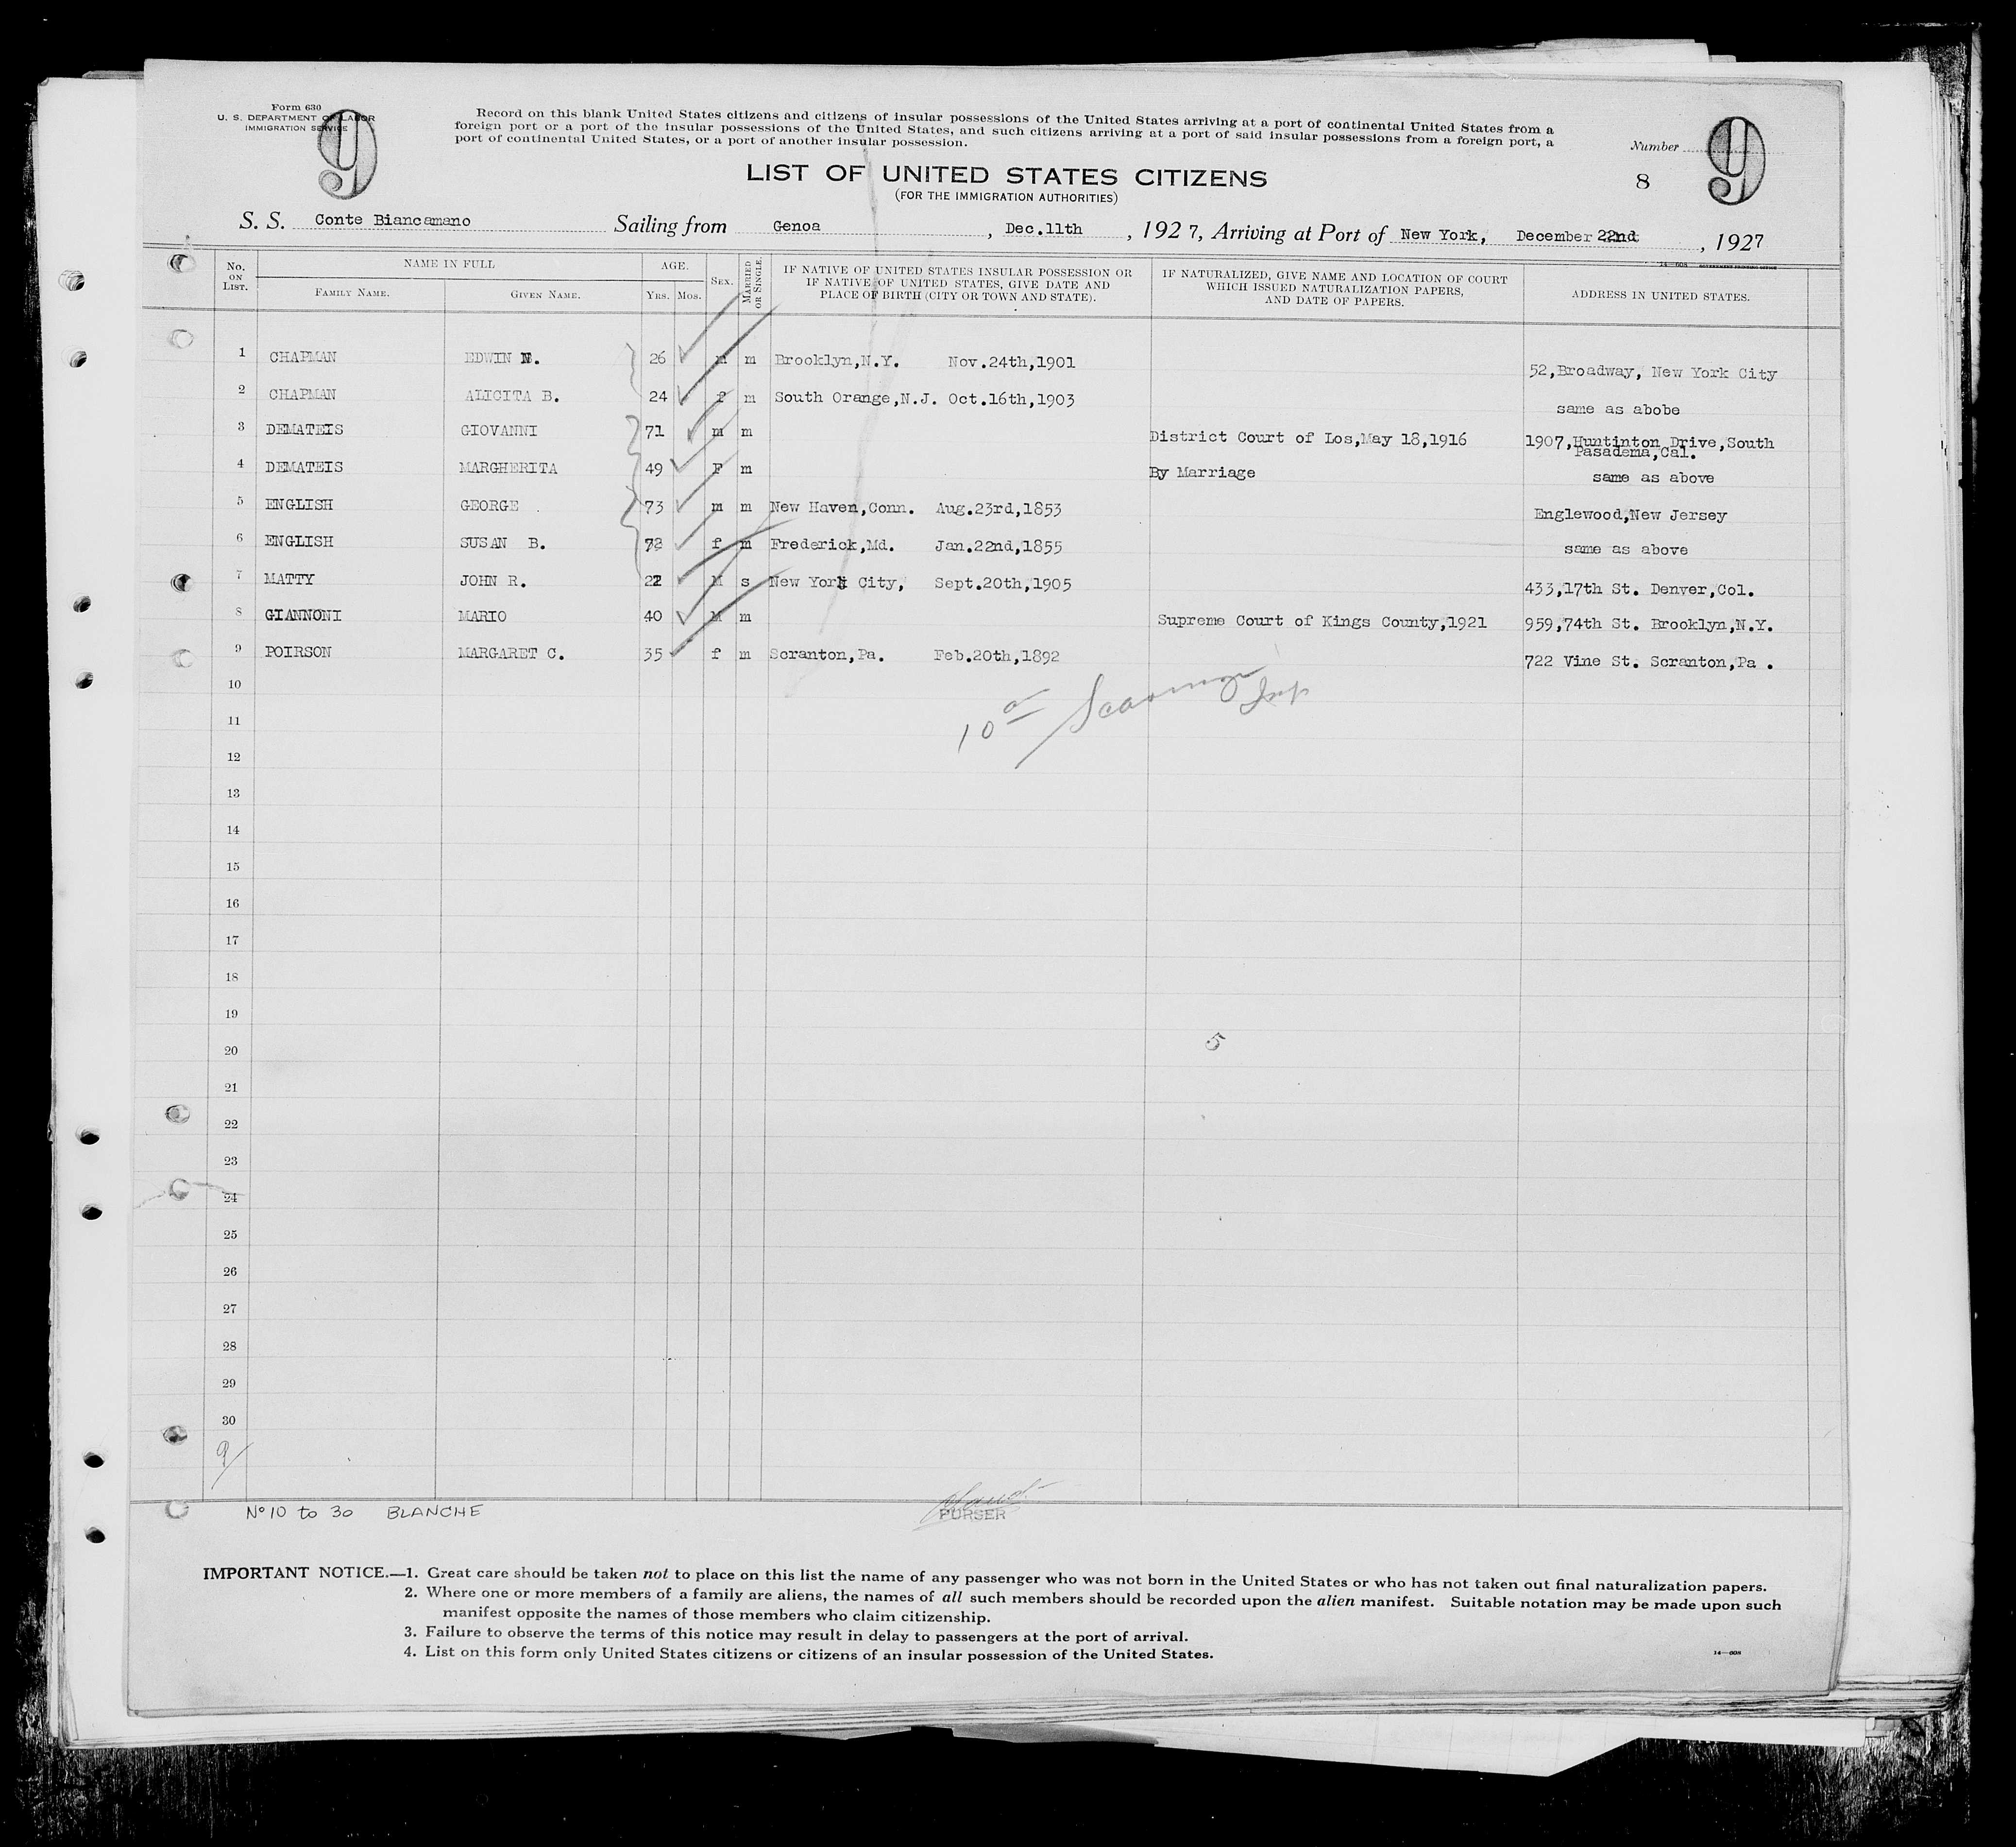 Form 630
U. S. DEPARTMENT OF LABOR
IMMIGRATION SERVICE
9
Record on this blank United States citizens and citizens of insular possessions of the United States arriving at a port of continental United States from a
foreign port or a port of the insular possessions of the United States, and such citizens arriving at a port of said insular possessions from a foreign port, a
port of continental United States, or a port of another insular possession.
Number
8
9
LIST OF UNITED STATES CITIZENS
(FOR THE IMMIGRATION AUTHORITIES)
S. S. Conte Biancamano Sailing from Genoa, Dec.11th, 1927, Arriving at Port of New York, December 22nd, 1927
No. ON LIST. NAME IN FULL AGE. SEX. MARRIED OR SINGLE. IF NATIVE OF UNITED STATES INSULAR POSSESSION OR IF NATIVE OF UNITED STATES, GIVE DATE AND PLACE OF BIRTH (CITY OR TOWN AND STATE). IF NATURALIZED, GIVE NAME AND LOCATION OF COURT WHICH ISSUED NATURALIZATION PAPERS, AND DATE OF PAPERS. ADDRESS IN UNITED STATES.
FAMILY NAME. GIVEN NAME. YRS. MOS.
1 CHAPMAN EDWIN N. 26 m m Brooklyn,N.Y. Nov.24th,1901 52,Broadway, New York City
2 CHAPMAN ALICITA B. 24 f m South Orange,N.J. Oct.16th,1903 same as abobe
3 DEMATEIS GIOVANNI 71 m m District Court of Los,May 18,1916 1907,Huntinton Drive,South
Pasadema,Cal.
4 DEMATEIS MARGHERITA 49 F m By Marriage same as above
5 ENGLISH GEORGE 73 m m New Haven,Conn. Aug.23rd,1853 Englewood,New Jersey
6 ENGLISH SUSAN B. 72 f m Frederick,Md. Jan.22nd,1855 same as above
7 MATTY JOHN R. 22 M s New York City, Sept.20th,1905 433,17th St. Denver,Col.
8 GIANNONI MARIO 40 M m Supreme Court of Kings County,1921 959,74th St. Brooklyn,N.Y.
9 POIRSON MARGARET C. 35 f m Scranton,Pa. Feb.20th,1892 722 Vine St. Scranton,Pa .
10
11
12
13
14
15
16
17
18
19
20
21
22
23
24
25
26
27
28
29
30
5
9/
Nº 10 to 30 BLANCHE
PURSER
IMPORTANT NOTICE.—1. Great care should be taken not to place on this list the name of any passenger who was not born in the United States or who has not taken out final naturalization papers.
2. Where one or more members of a family are aliens, the names of all such members should be recorded upon the alien manifest. Suitable notation may be made upon such
manifest opposite the names of those members who claim citizenship.
3. Failure to observe the terms of this notice may result in delay to passengers at the port of arrival.
4. List on this form only United States citizens or citizens of an insular possession of the United States.